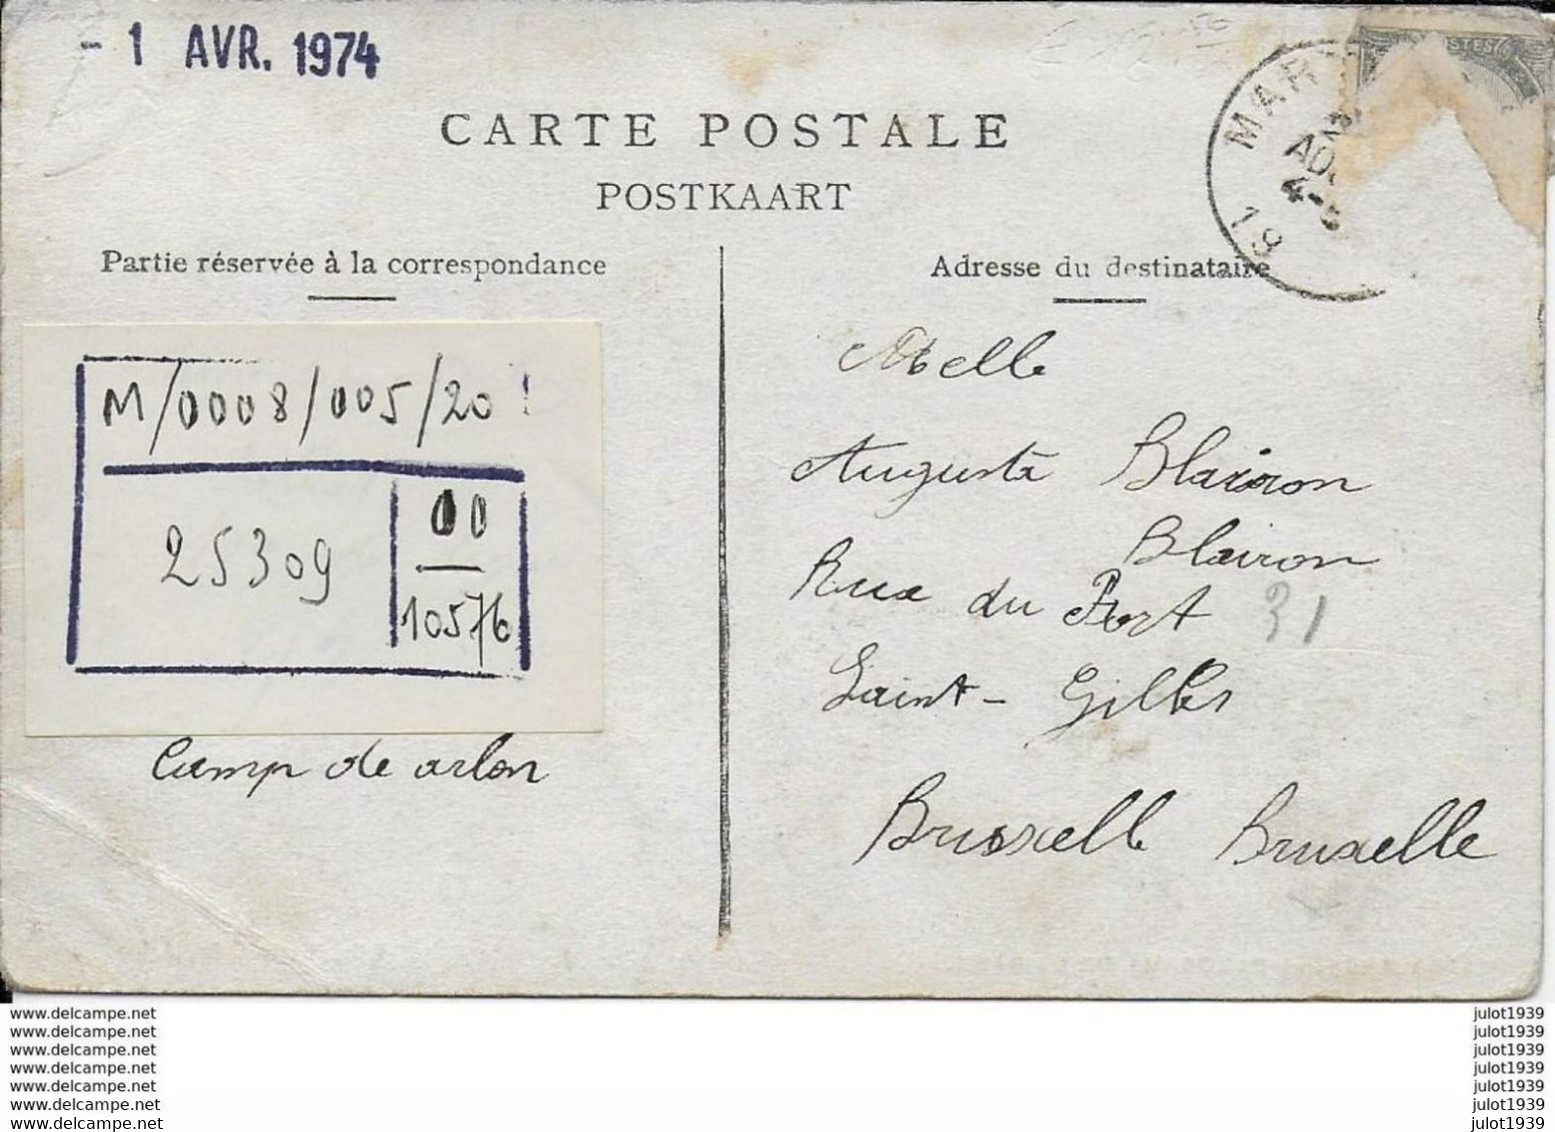 - 1 AVR. 1974
CARTE POSTALE
POSTKAART
Partie réservée à la correspondance
Adresse du destinataire
MAR
AO
4-5
19
STES
M/0008/005/20
25309
00
10576
Camp de arlon
Melle
Augusta Blairon
Blairon
Rue du Fort 31
Saint-Gilles
Bruxelle Bruxelle
www.delcampe.net
www.delcampe.net
www.delcampe.net
www.delcampe.net
www.delcampe.net
www.delcampe.net
www.delcampe.net
julot1939
julot1939
julot1939
julot1939
julot1939
julot1939
julot1939